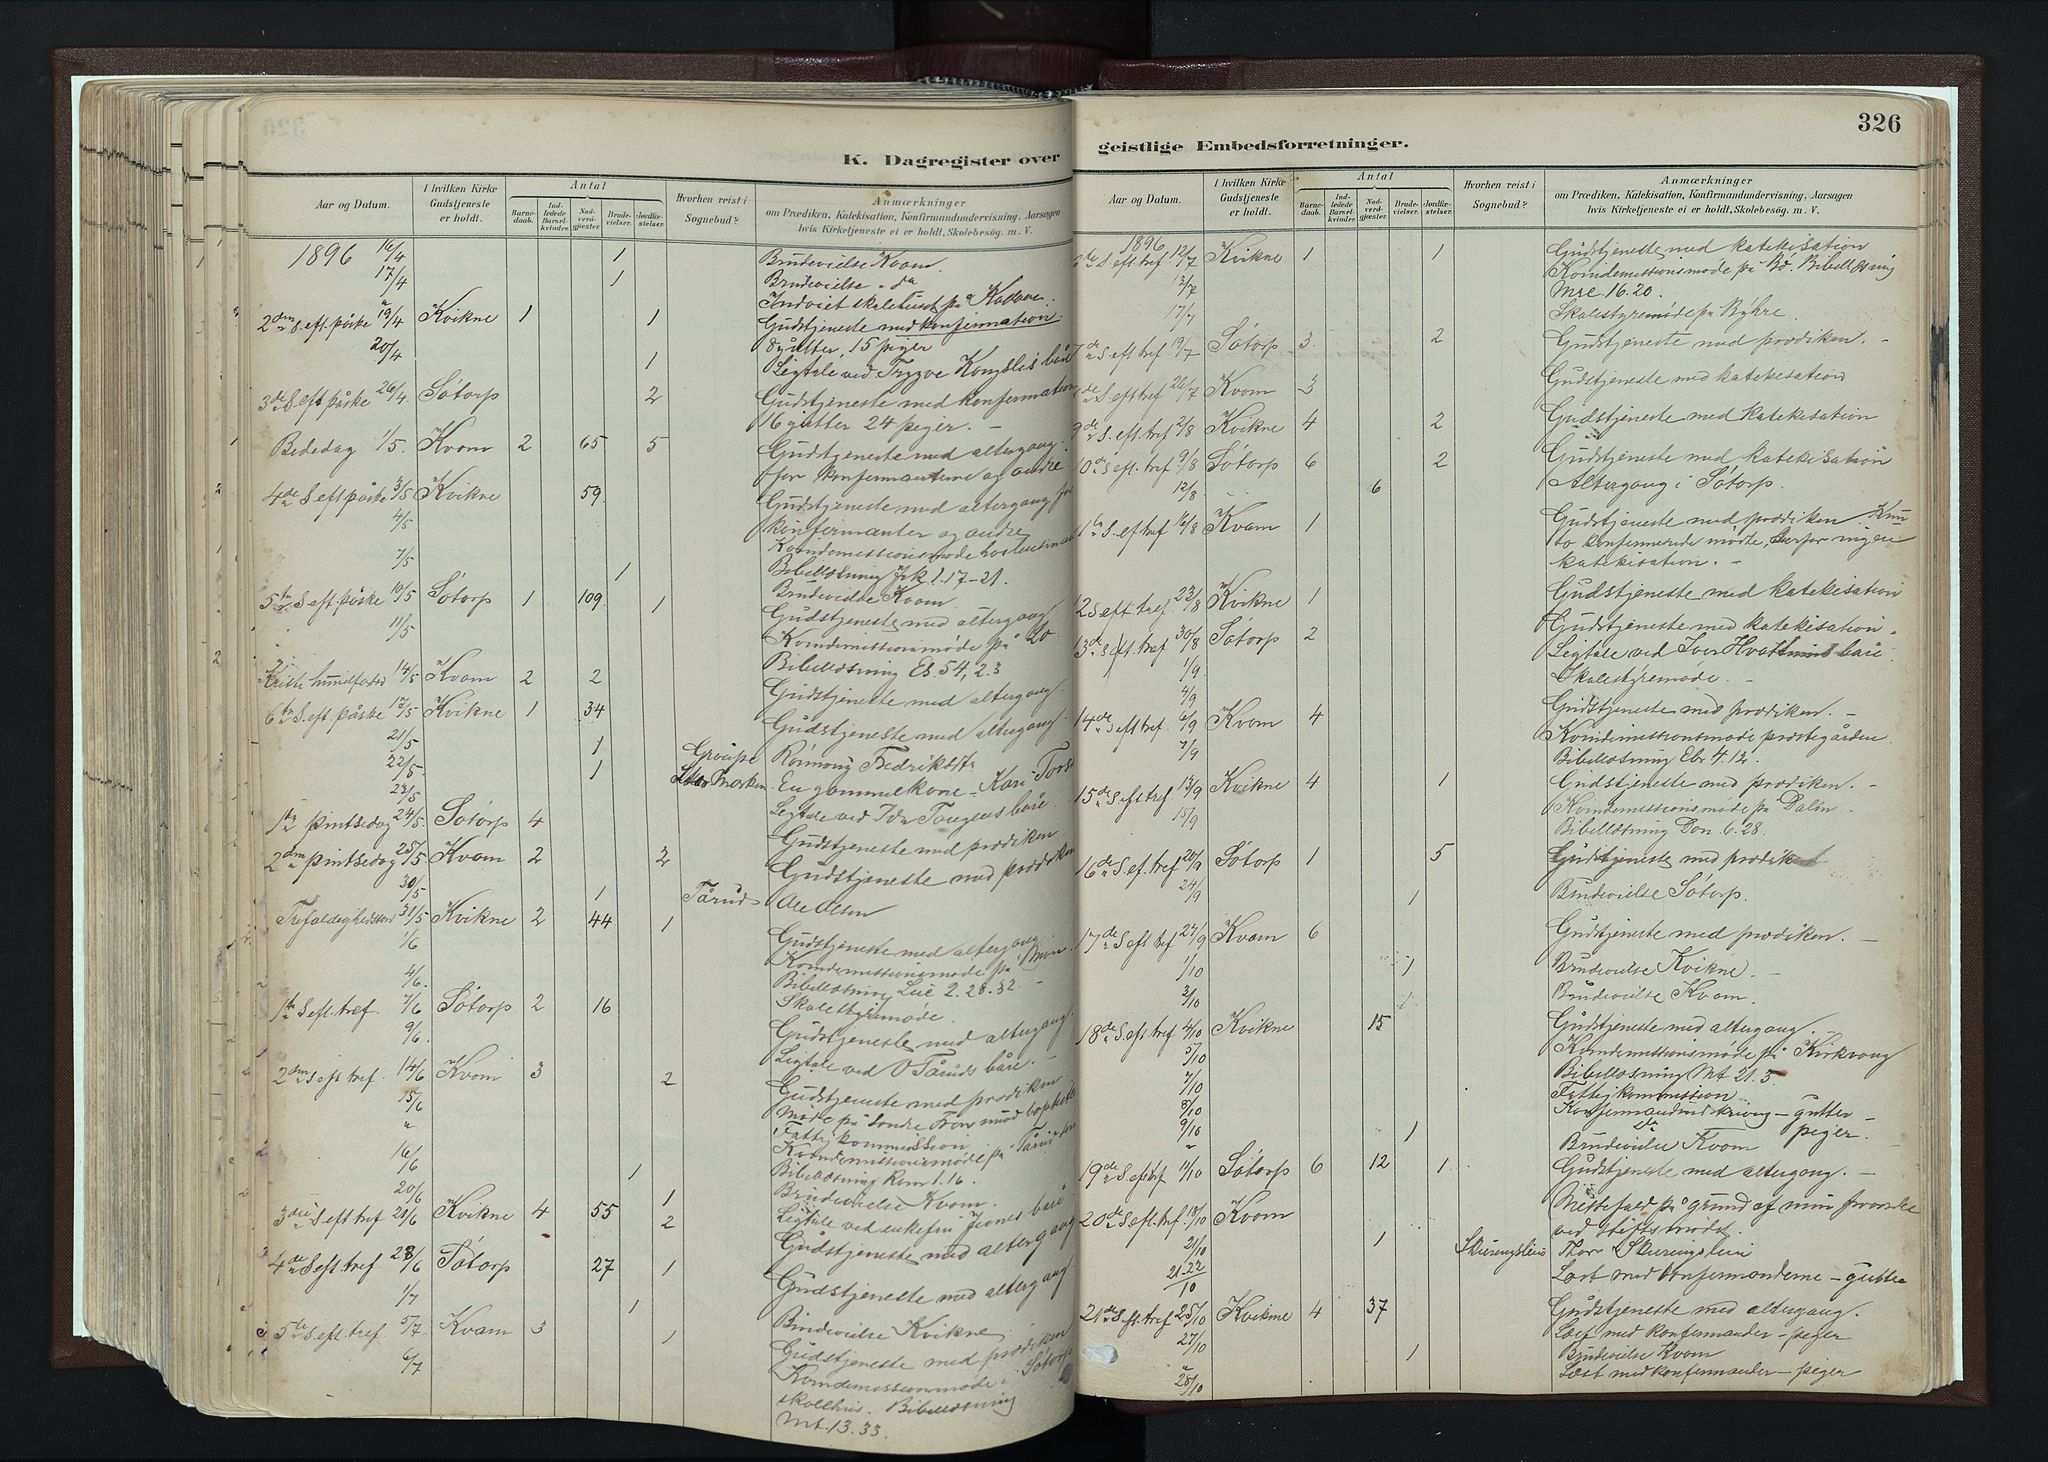 326
K. Dagregister over
Aar og Datum.
I hvilken Kirke Gudstjeneste er holdt.
Antal
Barnedaab.
Indledede Barselkvinder.
Nadverdgjester.
Brudevielser.
Jordfæstelser.
Hvorhen reist i Sognebud?
Anmærkninger
om Prædiken, Katekisation, Konfirmandundervisning, Aarsagen
hvis Kirketjeneste ei er holdt, Skolebesøg. m. V.
1896 16/4 1 Brudevielse Kvam.
17/4 1 Brudevielse " do
" Indviet skolehuset på
2den S. eft påske 19/4 Kvikne 1 1 Gudstjeneste med konfirmation.
8 gutter, 15 piger
20/4 1 Ligtale ved Trygve Kongslis båre
3de S. eft påske 26/4 Søtorp 2 Gudstjeneste med konfirmation
16 gutter 24 piger. –
Bededag 1/5 Kvam 2 65 5 Gudstjeneste med altergang
for konfirmanterne og andre
4de S eft påske 3/5 Kvikne 59 Gudstjeneste med altergang for
konfirmanter og andre
4/5 Kvindemissionsmøde hos
Bibellæsning 1.17–21.
7/5 1 Brudevielse Kvam
5te S eft påske 10/5 Søtorp 1 109 1 Gudstjeneste med altergang
11/5 Kvindemissionsmøde på Lo.
Bibellæsning Es. 54, 2.3
Kristi himmelfartsd 14/5 Kvam 2 2 Gudstjeneste med altergang.
6te S. eft påske 17/5 Kvikne 1 34 Gudstjeneste med altergang
21/5 1 Rønnaug Fredriksdtr
22/5 1 En gammel kone – Kari
23/5 Ligtale ved Ida Tangens båre
1ste pintsedag 24/5 Søtorp 4 Gudstjeneste med prædiken
2den pintsedag 25/5 Kvam 2 2 Gudstjeneste med prædiken
30/5 1 Tårud Ole Olsen
Trefoldighedssønd 31/5 Kvikne 2 44 1 Gudstjeneste med altergang
1/6 Kvindemissionsmøde på Moen
Bibellæsning Luc 2.28.32. –
4/6. Skolestyremøde.
1ste S eft. tref. 7/6 Søtorp 2 16 Gudstjeneste med altergang.
9/6 Ligtale ved O Tåruds båre. –
2den S eft tref. 14/6 Kvam 3 2 Gudstjeneste med prædiken
15/6 Møde på Søndre Fron
" Fattigkommission
16/6 Kvindemissionsmøde på Tårud
Bibellæsning Rom 1.16.
20/6 1 Brudevielse Kvam.
1 Ligtale ved enkefru Jevnes båre
3die S eft tref 21/6 Kvikne 4 55 2 Gudstjeneste med altergang
4de S eft. tref. 28/6 Søtorp 27 1 Gudstjeneste med altergang
1/7 1 Brudevielse Kvikne
5te S eft. tref. 5/7 Kvam 3 1 Gudstjeneste med prædiken
6/7 Kvindemissionsmøde i Søtorp
skolehus. Bibellæsning
Mt. 13.33.
geistlige Embedsforretninger.
Aar og Datum.
I hvilken Kirke Gudstjeneste er holdt.
Antal
Barnedaab.
Indledede Barselkvinder.
Nadverdgjester.
Brudevielser.
Jordfæstelser.
Hvorhen reist i Sognebud?
Anmærkninger
om Prædiken, Katekisation, Konfirmandundervisning, Aarsagen
hvis Kirketjeneste ei er holdt, Skolebesøg. m. V.
1896
6de S. eft. tref 12/7 Kvikne 1 1 Gudstjeneste med katekisation
12/7 Kvindemissionsmøde på Bø. Bibellæsning
Mrc. 16.20.
17/7 Skolestyremøde på Byhre.
7de S eft tref 19/7 Søtorp 3. 2 Gudstjeneste med prædiken. –
8de S. eft tref 26/7 Kvam 3 Gudstjeneste med katekisation
9de S. eft tref 2/8 Kvikne 4 2 Gudstjeneste med katekisation
10de S eft. tref 9/8 Søtorp 6 2 Gudstjeneste med katekisation
12/8 6 Altergang i Søtorp.
11te S. eft tref 16/8 Kvam 1 Gudstjeneste med prædiken. Kun
to konfirmerede mødte, derfor ingen
katekisation. –
12 S eft. tref. 23/8 Kvikne 1 Gudstjeneste med katekisation
13de S eft. tref 30/8 Søtorp 2 Gudstjeneste med katekisation.
1/9 Ligtale ved Iver båre
4/9 Skolestyremøde. –
14de S eft tref. 6/9 Kvam 4 Gudstjeneste med prædiken. –
7/9 Kvindemissionsmøde præstegården
Bibellæsning Ebr 4.12.
15de S eft tref. 13/9 Kvikne 4 1 Gudstjeneste med prædiken. –
15/9 Kvindemissionsmøde på Dalen
Bibellæsning Dom 6.28.
16de S. ef. tref 20/9 Søtorp 1 5 Gudstjeneste med prædiken
24/9 1 Brudevielse Søtorp.
17de S eft tref 27/9 Kvam 6 Gudstjeneste med prædiken. –
1/10 1 Brudevielse Kvikne. –
3/10 1 Brudevielse Kvam.
18de S. eft. tref 4/10 Kvikne 15 Gudstjeneste med altergang.
5/10 Kvindemissionsmøde på Kirkvang
Bibellæsning Mt 21.5.
7/10 Fattigkommission
8/10 Konfirmandindskrivning – gutter –
9/10 do piger. –
" 1 Brudevielse Kvam
19de S eft tref 11/10 Søtorp 6 12 1 Gudstjeneste med altergang. –
20de S eft. tref. 18/10 Kvam Messefald på grund af min
ved stiftsmødet.
21/10 1 Thor
21.22/10 Læst med konfirmanderne – gutter
21de S. eft tref 25/10 Kvikne 4 37 Gudstjeneste med altergang.
27/10 Læst med konfirmander – piger
" 1 Brudevielse Kvam
28/10 Læst med konfirmander – piger